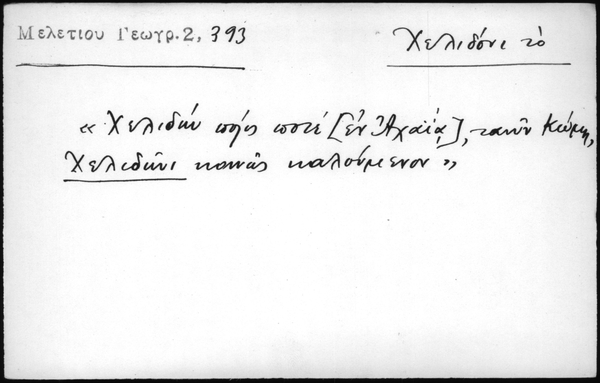 Μελετίου Γεωγρ. 2, 393
Χελιδόνι τὸ
« Χελιδὼν πόλις ποτέ [ἐν Ἀχαΐᾳ], τανῦν κώμη,
Χελιδῶνι κοινῶς καλούμενον »